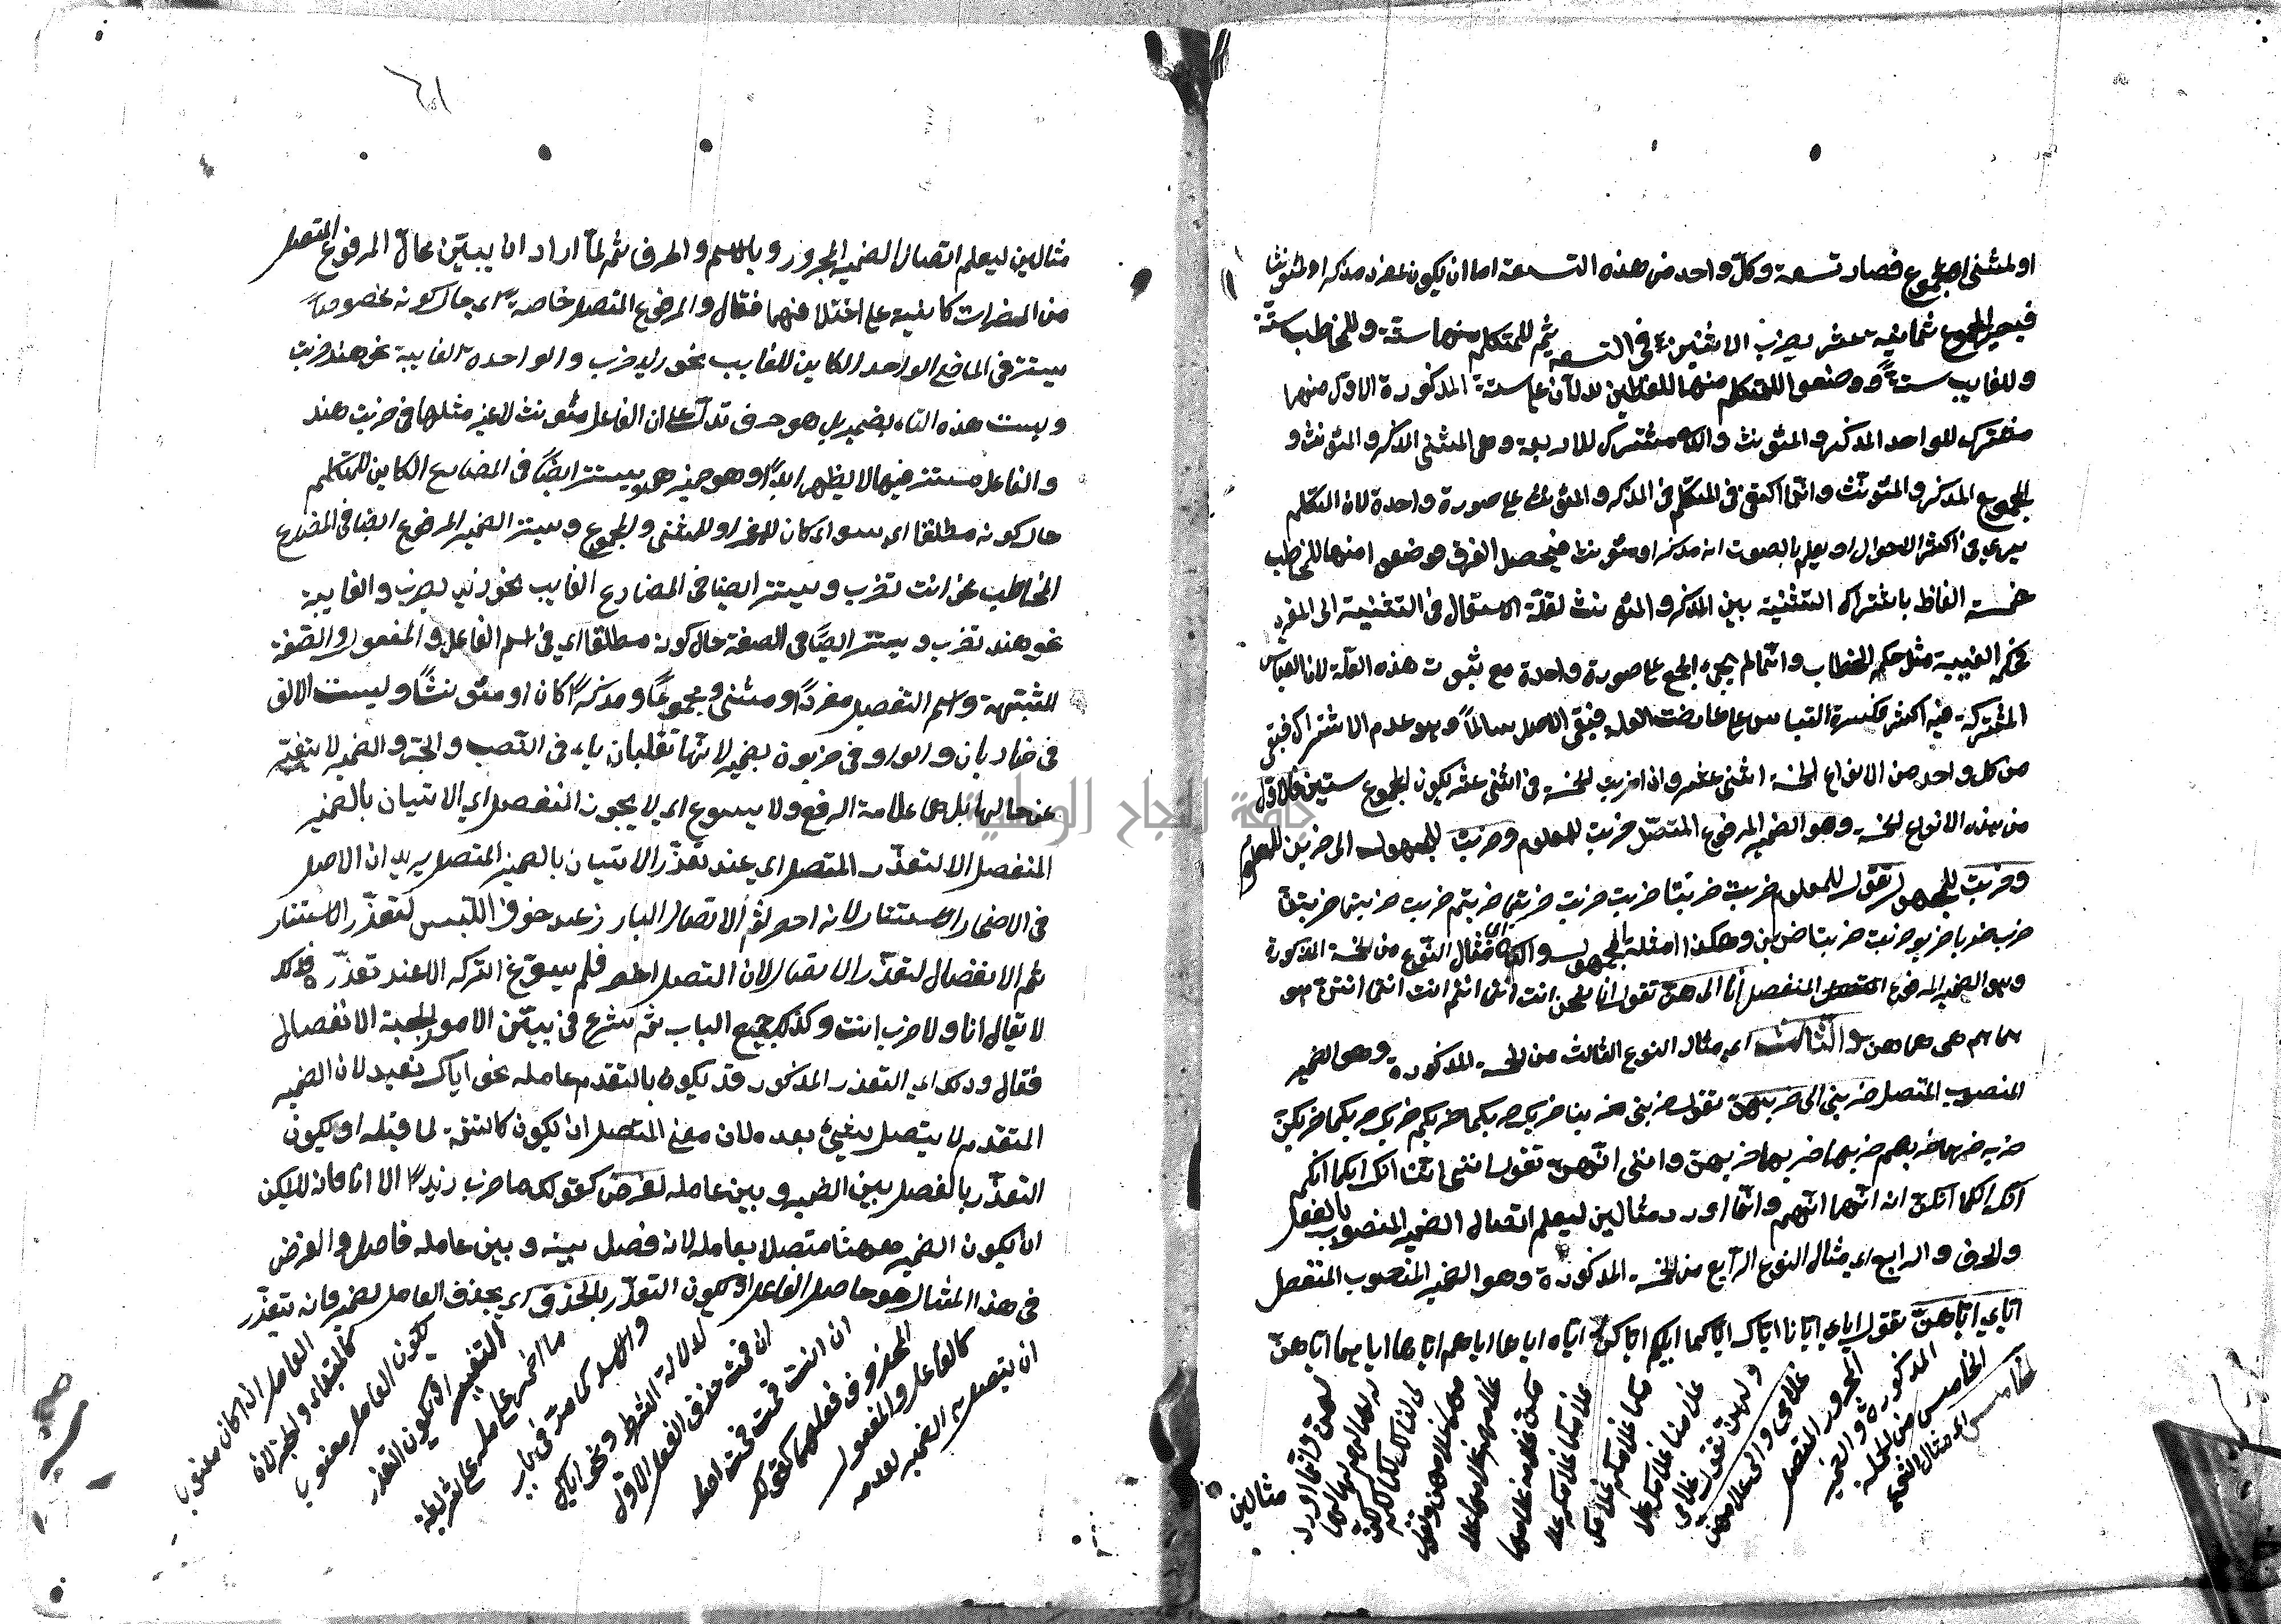 او المثنى او المجموع فصار تسعة وكل واحد من هذه التسعة اما ان يكون لمفرد مذكر او لمؤنث
فيصير المجموع ثمانية عشر بضرب الاثنين في التسعة ثم للمتكلم منها ستة وللمخاطب ستة
وللغايب ستة ووضعوا للمتكلم منها للفظين يدلان على ستة المذكورة الاول منهما
مشترك للواحد المذكر والمؤنث والثاني مشترك للاربعة وهي المثنى المذكر والمؤنث و
المجموع المذكر والمؤنث وانما اكتفى في المتكلم في المذكر والمؤنث على صورة واحدة لان المتكلم
يرى في اكثر الاحوال او يعلم بالصوت انه مذكر او مؤنث فيحصل الفرق ووضعوا منها للمخاطب
خمسة الفاظ باشتراك التثنية بين المذكر والمؤنث لقلة الاستعمال في التثنية الى المفرد
فحكم الغيبة مثل حكم الخطاب وانما لم يجئ الجمع على صورة واحدة مع ثبوت هذه العلة لان القياس
المشتركة فيه اكثر فكسرة القياس على عارضت العلة فبقى الاصل سالما وهو عدم الاشتراك فبقى
من كل واحد من الانواع الخمسة اثنى عشر واذا ضربت الخمسة في اثنى عشر يكون المجموع ستين فالاول
من هذه الانواع الخمسة وهو الضمير المرفوع المتصل ضربت للمعلوم وضربت للمجهول الى ضربن للمعلوم
وضربن للمجهول تقول للمعلوم ضربت ضربنا ضربت ضربت ضربتما ضربتم ضربت ضربتما ضربتن
ضرب ضربا ضربوا ضربت ضربتا ضربن وهكذا امثلة المجهول والثاني اي مثال النوع من الخمسة المذكورة
وهو الضمير المرفوع المنفصل انا الى هن تقول انا نحن انت انتما انتم انت انتما انتن هو
هما هم هي هما هن والثالث اي مثال النوع الثالث من الخمسة المذكورة وهو الضمير
المنصوب المتصل ضربني الى ضربهن تقول ضربني ضربنا ضربك ضربكما ضربكم ضربك ضربكما ضربكن
ضربه ضربهما ضربهم ضربها ضربهما ضربهن وانني انهن تقول انني اننا انك انكما انكم
انك انكما انكن انه انهما انهم وانما اورد مثالين ليعلم اتصال الضمير المنصوب بالفعل
والحرف والرابع اي مثال النوع الرابع من الخمسة المذكورة وهو الضمير المنصوب المنفصل
اياي اياهن تقول اياي ايانا اياك اياكما اياكم اياكن اياه اياهما اياهم اياها اياهما اياهن
الخامس اي مثال النوع
الخامس من الخمسة
المذكورة والضمير
المجرور المتصل
غلامي ولي الى غلامهن
ولهن تقول غلامي
غلامنا غلامك غلا
مكما غلامكم غلامك
غلامكما غلامكن غلا
مثالين
مثالين ليعلم اتصال الضمير المجرور وبالاسم والحرف ثم لما اراد ان يبين حال المرفوع المتصل
من المضمرات كائنية على اختلافهما فقال والمرفوع المتصل خاصة اي حال كونه مخصوصا
يستتر في الماضي الواحد الكاين للغايب نحو زيد ضرب والواحدة الغايبة نحو هند ضربت
وليست هذه التاء بضمير بل هو حرف تدل على ان الفاعل مؤنث لا غير مثلها في ضربت هند
والفاعل مستتر فيها لا يظهر ابدا وهو ضمير هند ويستتر ايضا في المضارع الكاين للمتكلم
حال كونه مطلقا اي سواء كان للمفرد او للمثنى والمجموع ويستتر الضمير المرفوع ايضا في المضارع
المخاطب نحو انت تضرب ويستتر ايضا في المضارع الغايب نحو زيد يضرب والغايبة
نحو هند تضرب ويستتر ايضا في الصفة حال كونه مطلقا اي في اسم الفاعل والمفعول والصفة
المشبهة واسم التفضيل مفردا ومثنى ومجموعا ومذكرا كان او مؤنثا وليست الالف
في ضاربان والواو في ضاربون بضمير لانها تقلبان ياء في النصب والجر والضمير لا يتغير
عن حالها بل هي علامة الرفع ولا يسوغ اي لا يجوز المنفصل اي الاتيان بالضمير
المنفصل الا لتعذر المتصل اي عند تعذر الاتيان بالضمير المتصل يريد ان الاصل
في الاضمار الاستتار لانه اخصر ثم الاتصال البارز عند خوف اللبس لتعذر الاستتار
ثم الانفصال لتعذر الاتصال لان المتصل اخصر فلم يسوغ تركه الا عند تعذره فلذلك
لا يقال انا ولا ضرب انت وكذلك جميع الباب ثم شرع في تبيين الامور الموجبة الانفصال
فقال وذلك اي التعذر المذكور قد يكون بالتقدم عامله نحو اياك نعبد لان الضمير
المتقدم لا يتصل بشيئ بعده لان معنى المتصل ان يكون كالتتمة لما قبله او يكون
التعذر بالفصل بين الضمير وبين عامله لغرض كقولك ما ضرب زيد الا انا فانه لا يمكن
ان يكون الضمير ههنا متصلا بعامله لانه فصل بينه وبين عامله فاصل والغرض
في هذا المثال هو حاصل الفاعل او يكون التعذر بالحذف اي بحذف العامل لضمير فانه تعذر
ان يتصل به الضمير لعدمه
كالفاعل والمفعول
المحذوف فعلهما كقولك
ان انت قمت قمت اصله
ان قمت حذف الفعل الاول
لدلالة الشرط ونحو اياك
والاسد كما مر في باب
ما اضمر عامله على شريطة
التفسير او يكون التعذر
بكون العامل معنويا
كالمبتداء والخبر لان
العامل اذا كان معنويا
جامعة النجاح الوطنية